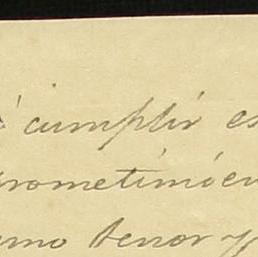 á cumplir es
prometimien
smo tenor y